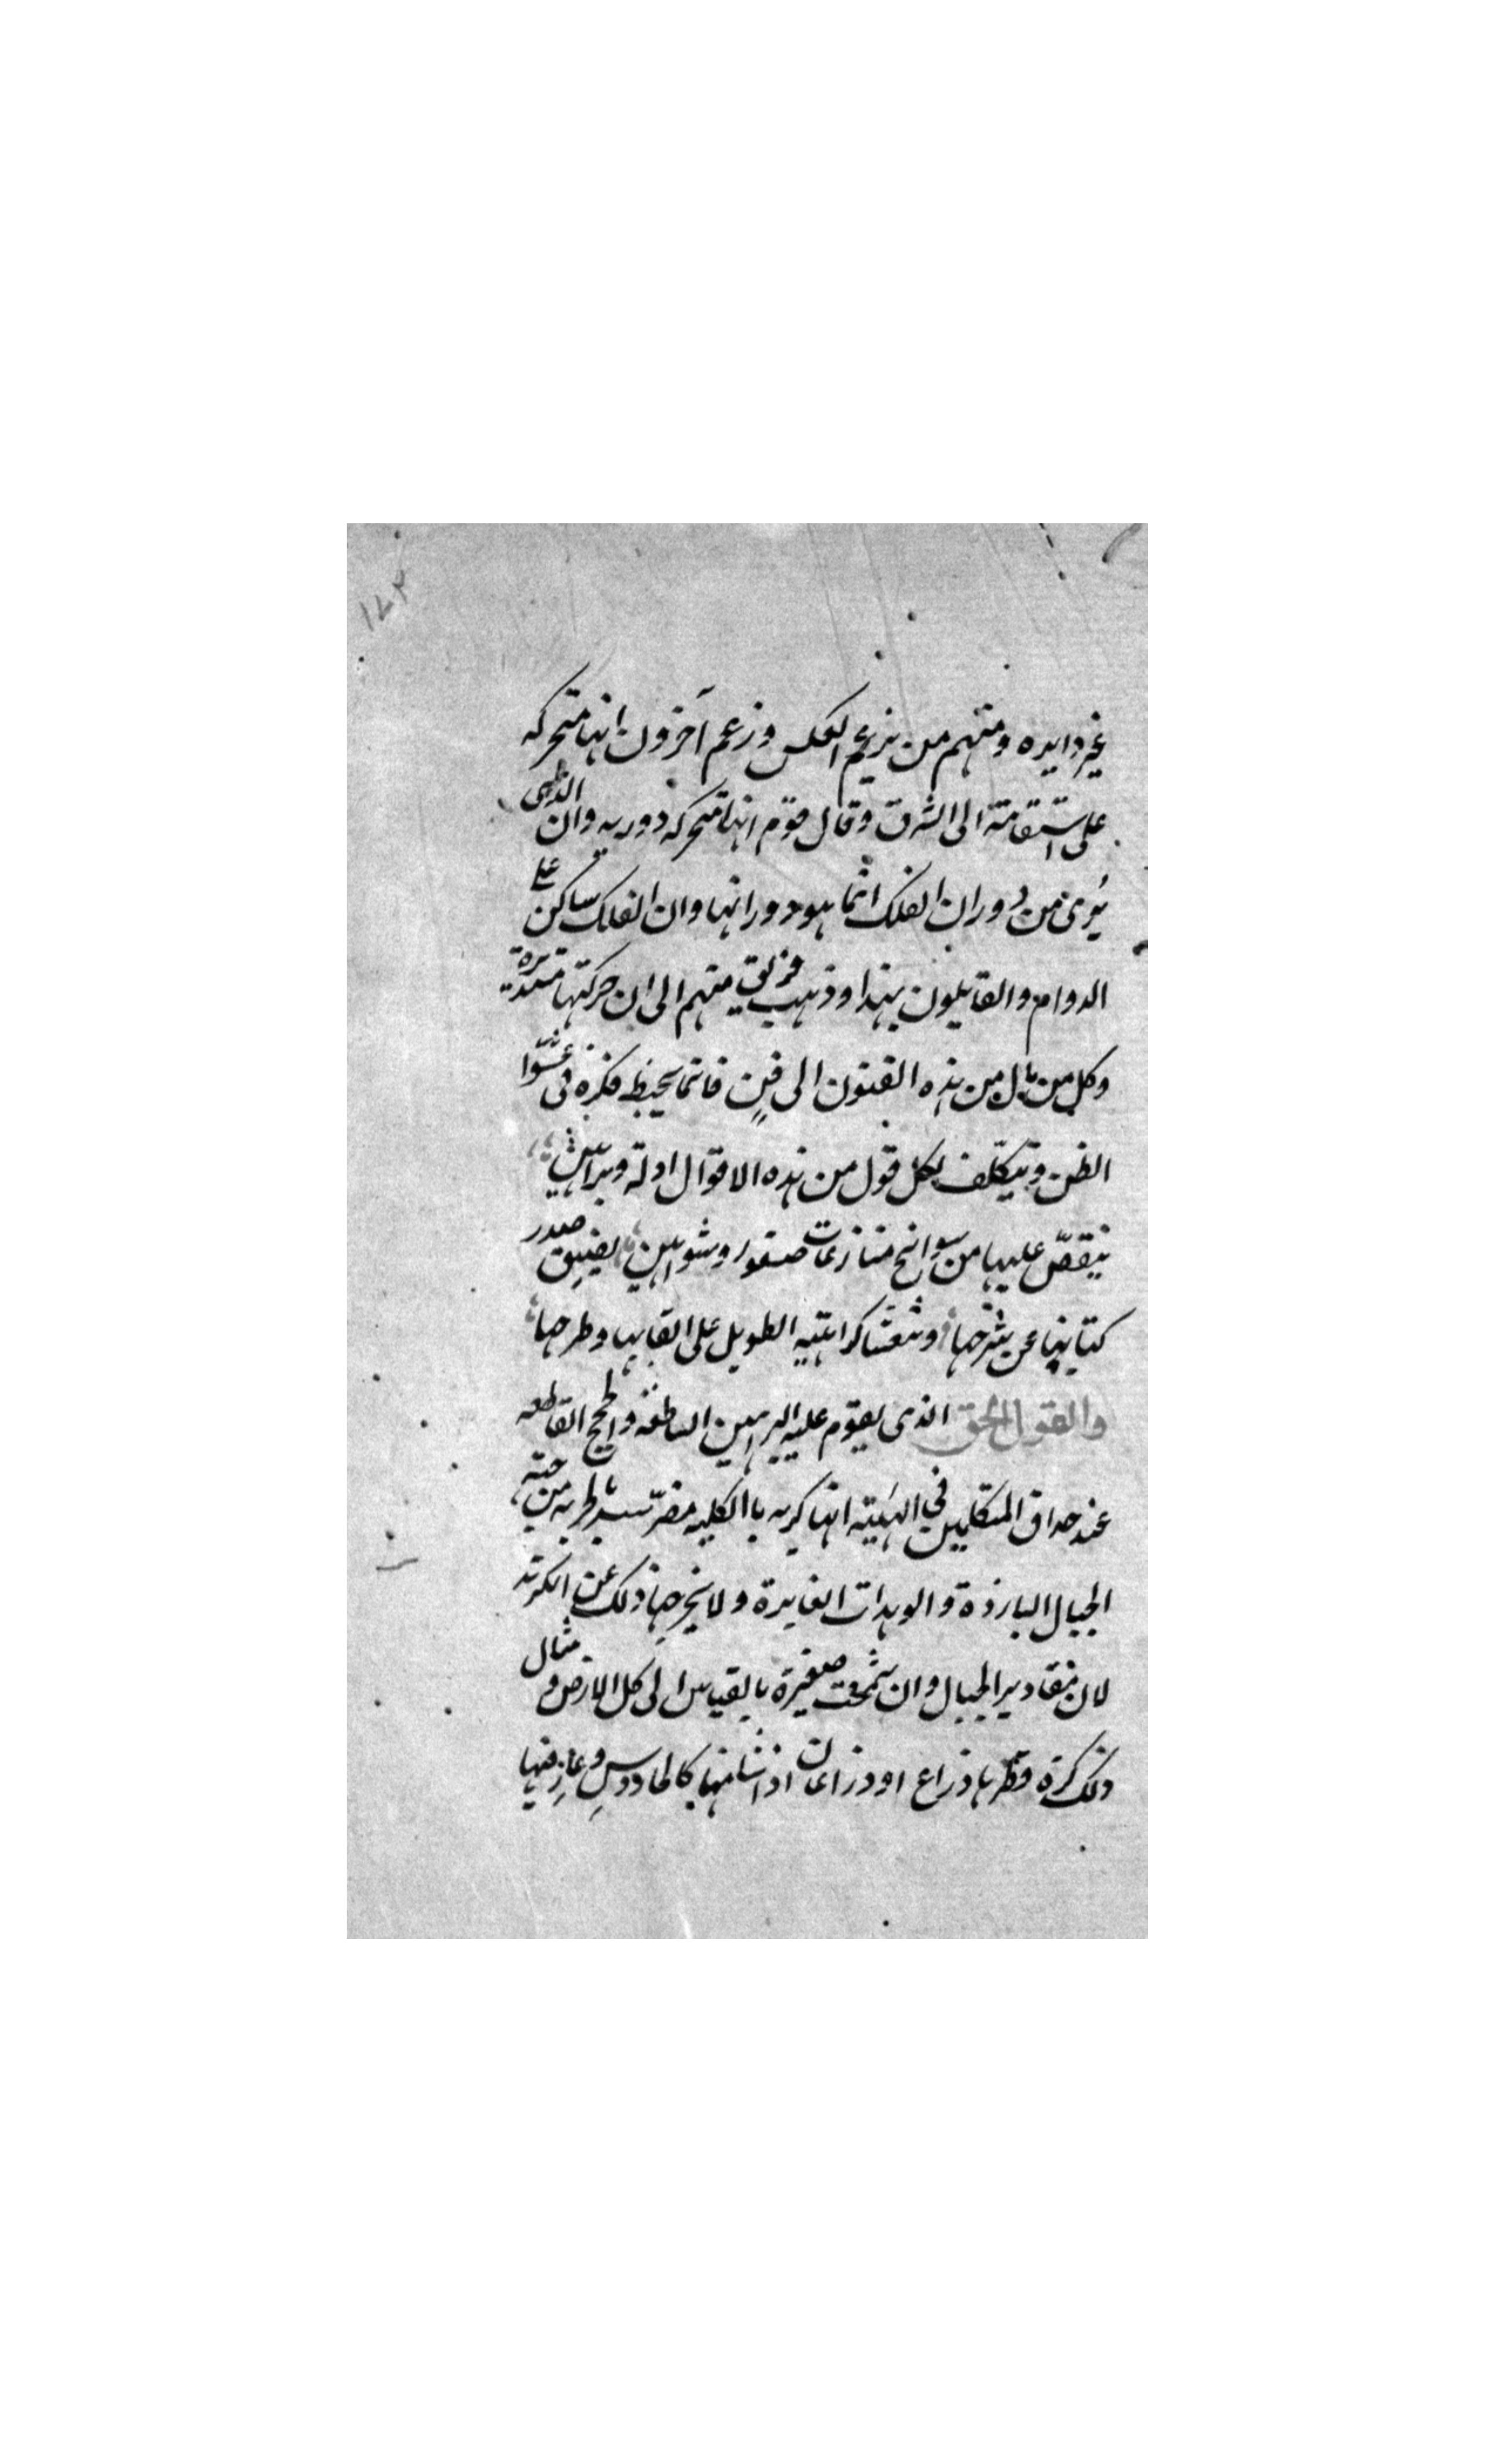 ١٤٢
غير دايره ومنهم من يزعم العكس وزعم آخرون انها متحركه
على استقامة الى الشرق وقال قوم انها متحركه دوريه وان الذى
يُرى من دوران الفلك انما هو دورانها وان الفلك ساكن على
الدوام والقايلون بهذا وذهب فريق منهم الى ان حركتها مستديرة
وكل من مال من هذه الفنون الى فنٍ فانما يخبط فكره فى عشوا
الظن ويتكلف لكل قول من هذه الاقوال ادلة وبراهين
ينقضّ عليها من سوانح منازعات صقور وشواهين يضيق صدر
كتابنا عن شرحها والطويل على القابها وطرحها
والقول الحق الذى يقوم عليه البراهين الساطعة والحجج القاطعه
عند حداق المتكلمين في الهيئة انها كريه باالكليه مضرّسه بالجزيه من جهة
الجبال البارزة والوهدات الغايرة ولا يخرجها ذلك عن الكرية
لان مقادير الجبال وان شمخت صغيرة بالقياس الى كل الارض و مثال
ذلك كرة قطرها ذراع او ذراعان اذا نتا منها كالجاورس وغار فيها